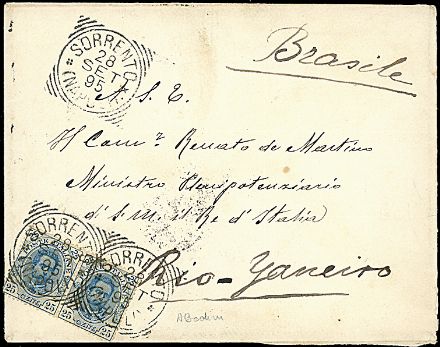 Brasile
SORRENTO
28
SET
95
(NAPOLI)
A. S. E.
Il Comm.r Renato de Martino
Ministro Plenipotenziario
d'S. M. il Re d'Italia
Rio-Janeiro
SORRENTO
28
SORRENTO
28
SET
95
25
25
25